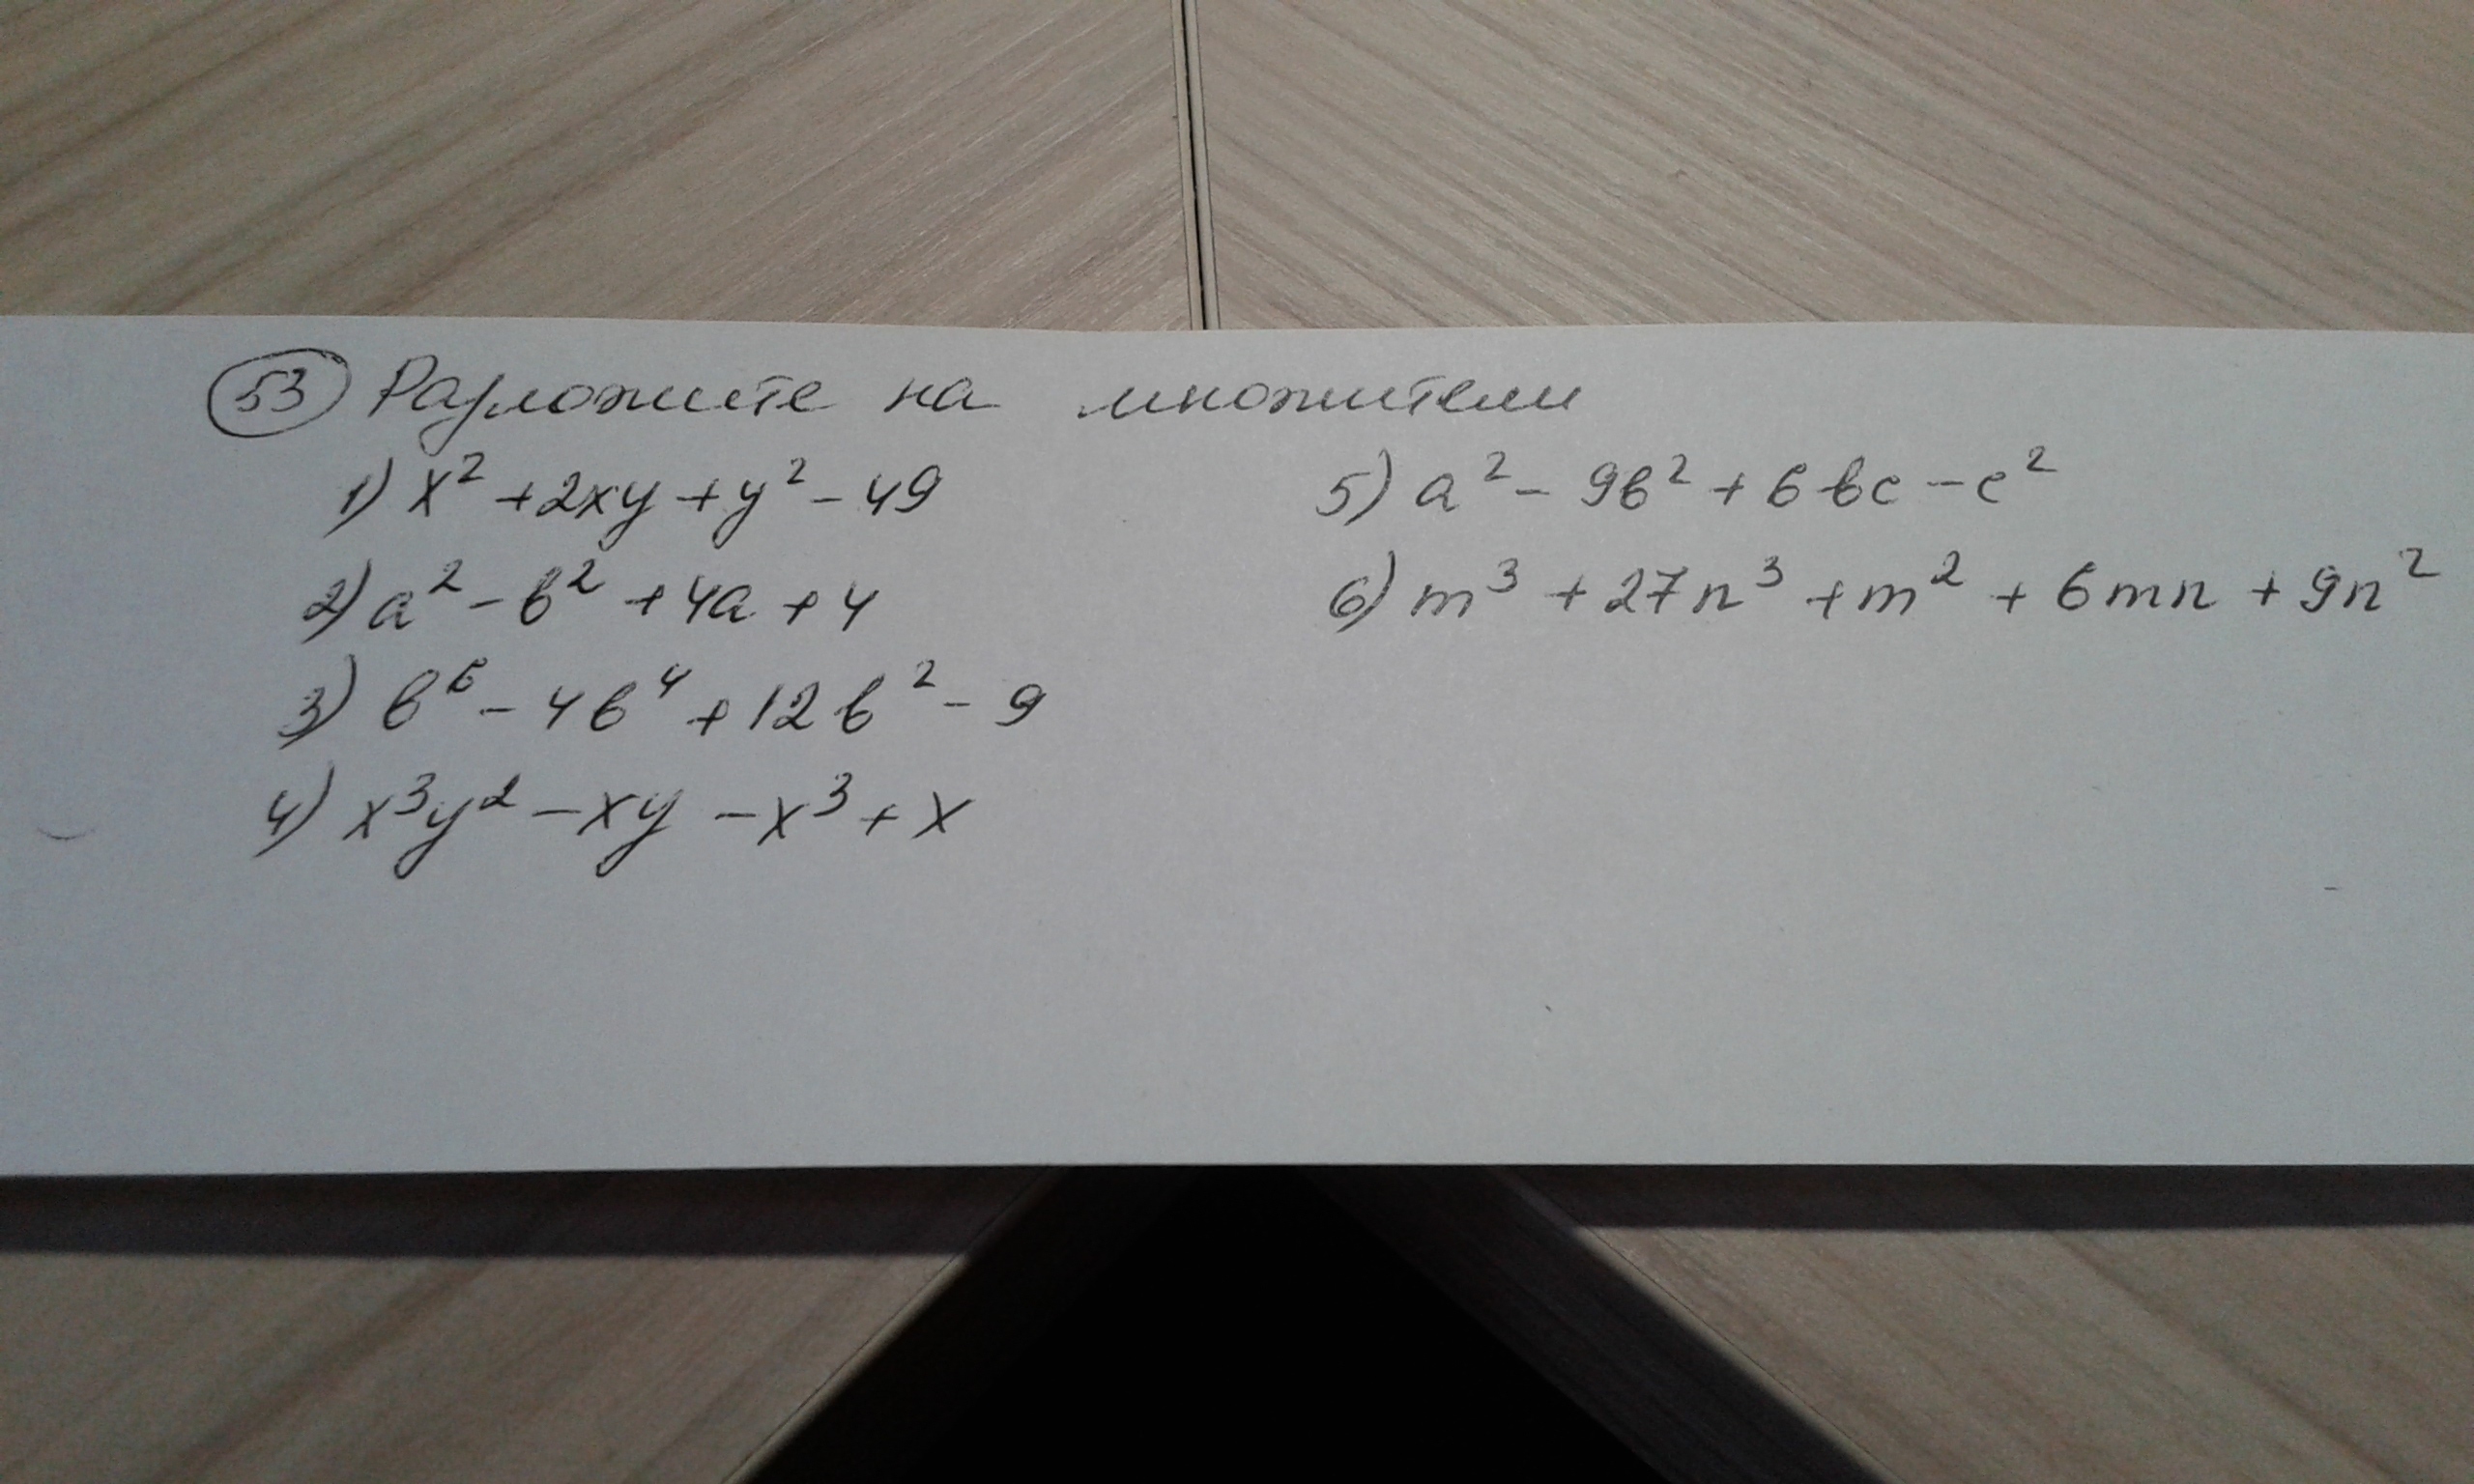 53 Разложите на множители
1) x² + 2xy + y² - 49
2) a² - b² + 4a + 4
3) b⁶ - 4b⁴ + 12b² - 9
4) x³y² - xy - x³ + x
5) a² - 9b² + 6bc - c²
6) m³ + 27n³ + m² + 6mn + 9n²